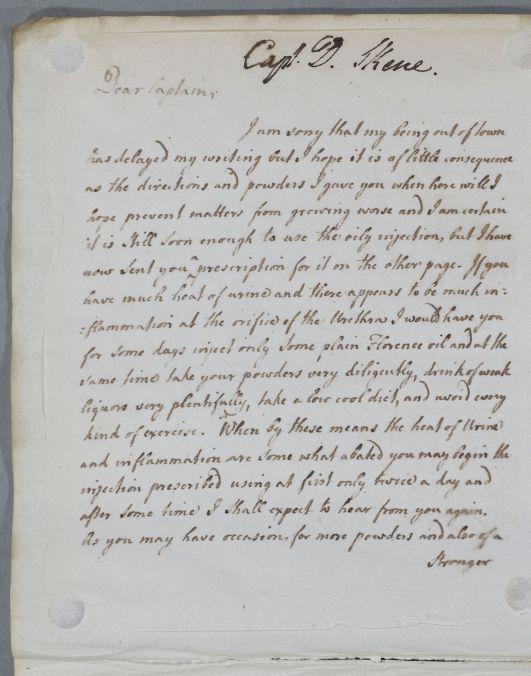 Capt. D. Skene.
Dear Captain,
I am sorry that my being out of town
has delayed my writing but I hope it is of little consequence
as the directions and powders I gave you when here will I
hope prevent matters from growing worse and I am certain
it is still soon enough to use the oily injection, but I have
now sent you a prescription for it on the other page. If you
have much heat of urine and there appears to be much in-
-flammation at the orifice of the Urethra I would have you
for some days inject only some plain Florence oil and at the
same time take your powders very diligently, drink of weak
liquors very plentifully, take a low cool diet, and avoid every
kind of exercise. When by these means the heat of Urine
and inflammation are some what abated you may begin the
injection prescribed using at first only twice a day and
after some time I shall expect to hear from you again.
As you may have occasion for more powders and also of a
Stronger